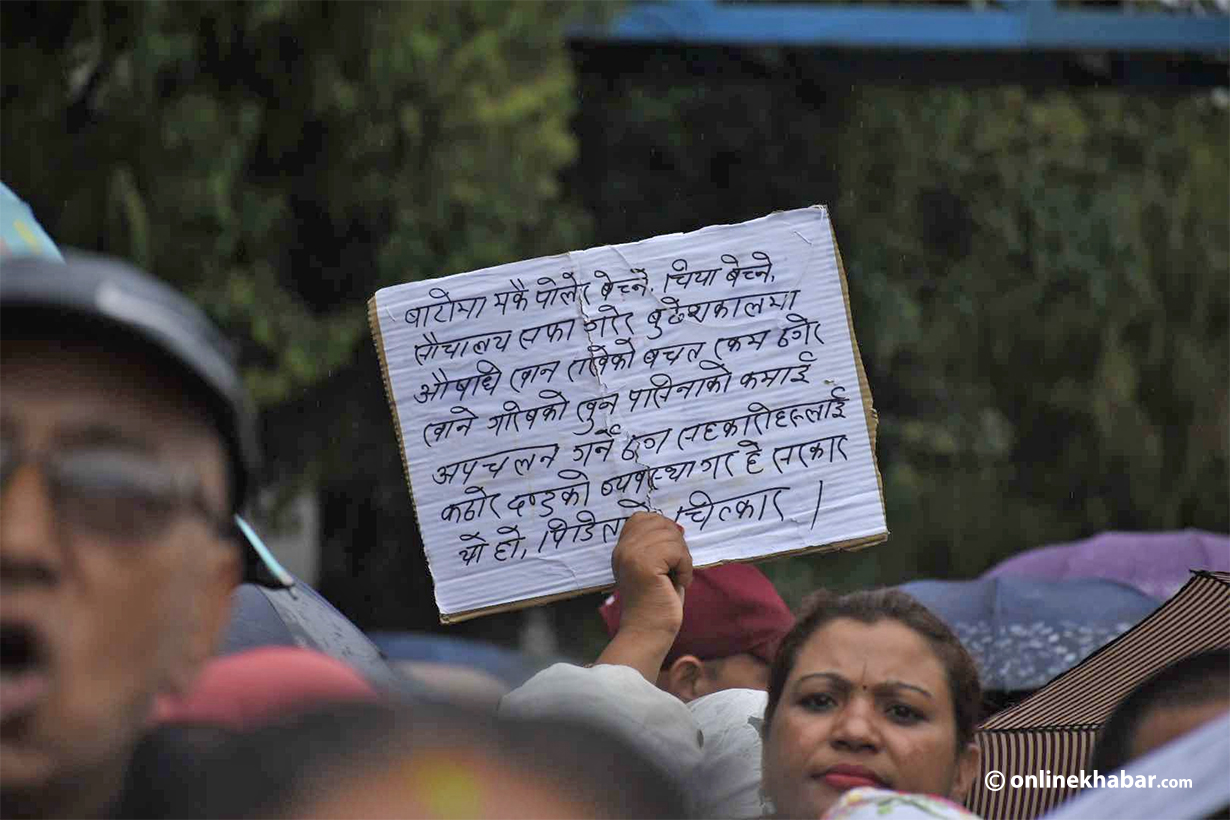 बाटोमा मकै पोलेर बेच्ने, चिया बेच्ने,
सौचालय सफा गरेर बुढेशकालमा
औषधि खान राखेको बचत रकम ठगेर
खाने गरिबको खुन पसिनाको कमाई
अपचलन गर्ने ठग सहकारीहरूलाई
कठोर दण्डको व्यवस्था गर हे सरकार
यो हो, पिडितको चित्कार ।
© onlinekhabar.com